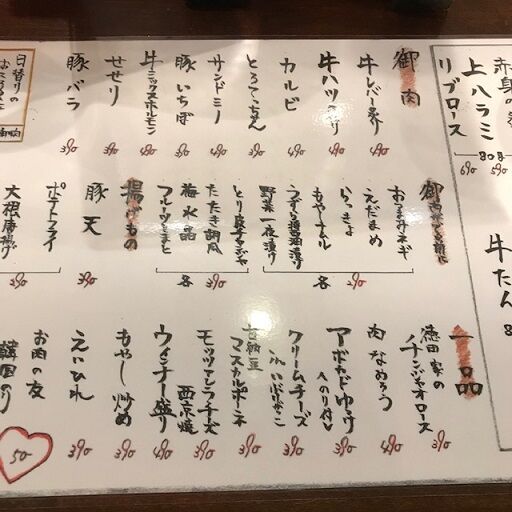 上ハラミ
リブロース
80g
690
590
牛たん
御肉
牛レバー炙り 490
牛ハツ炙り 490
カルビ 490
とろてっちゃん 390
サンドミノ 490
豚いちぼ 390
牛ミックスホルモン 490
せせり 390
豚バラ 390
日替りの
おつまみネギ
えだまめ
らっきょ
もやしナムル
うずら醤油漬け
野菜一夜漬け
各 290
とり皮チャンジャ
たたき胡瓜
梅水晶
フルーツとまと
各 390
揚げもの
豚天 390
ポテトフライ
大根唐揚げ
390
一品
徳田家のチンジャオロース 390
肉なめろう 490
アボカドゆっけ のり付 390
クリームチーズ
いぶりがっこ 390
マスカルポーネ 390
モッツァレラチーズ西京焼 390
ウインナー盛り 490
もやし炒め 390
えいひれ 390
お肉の友
韓国のり
50-